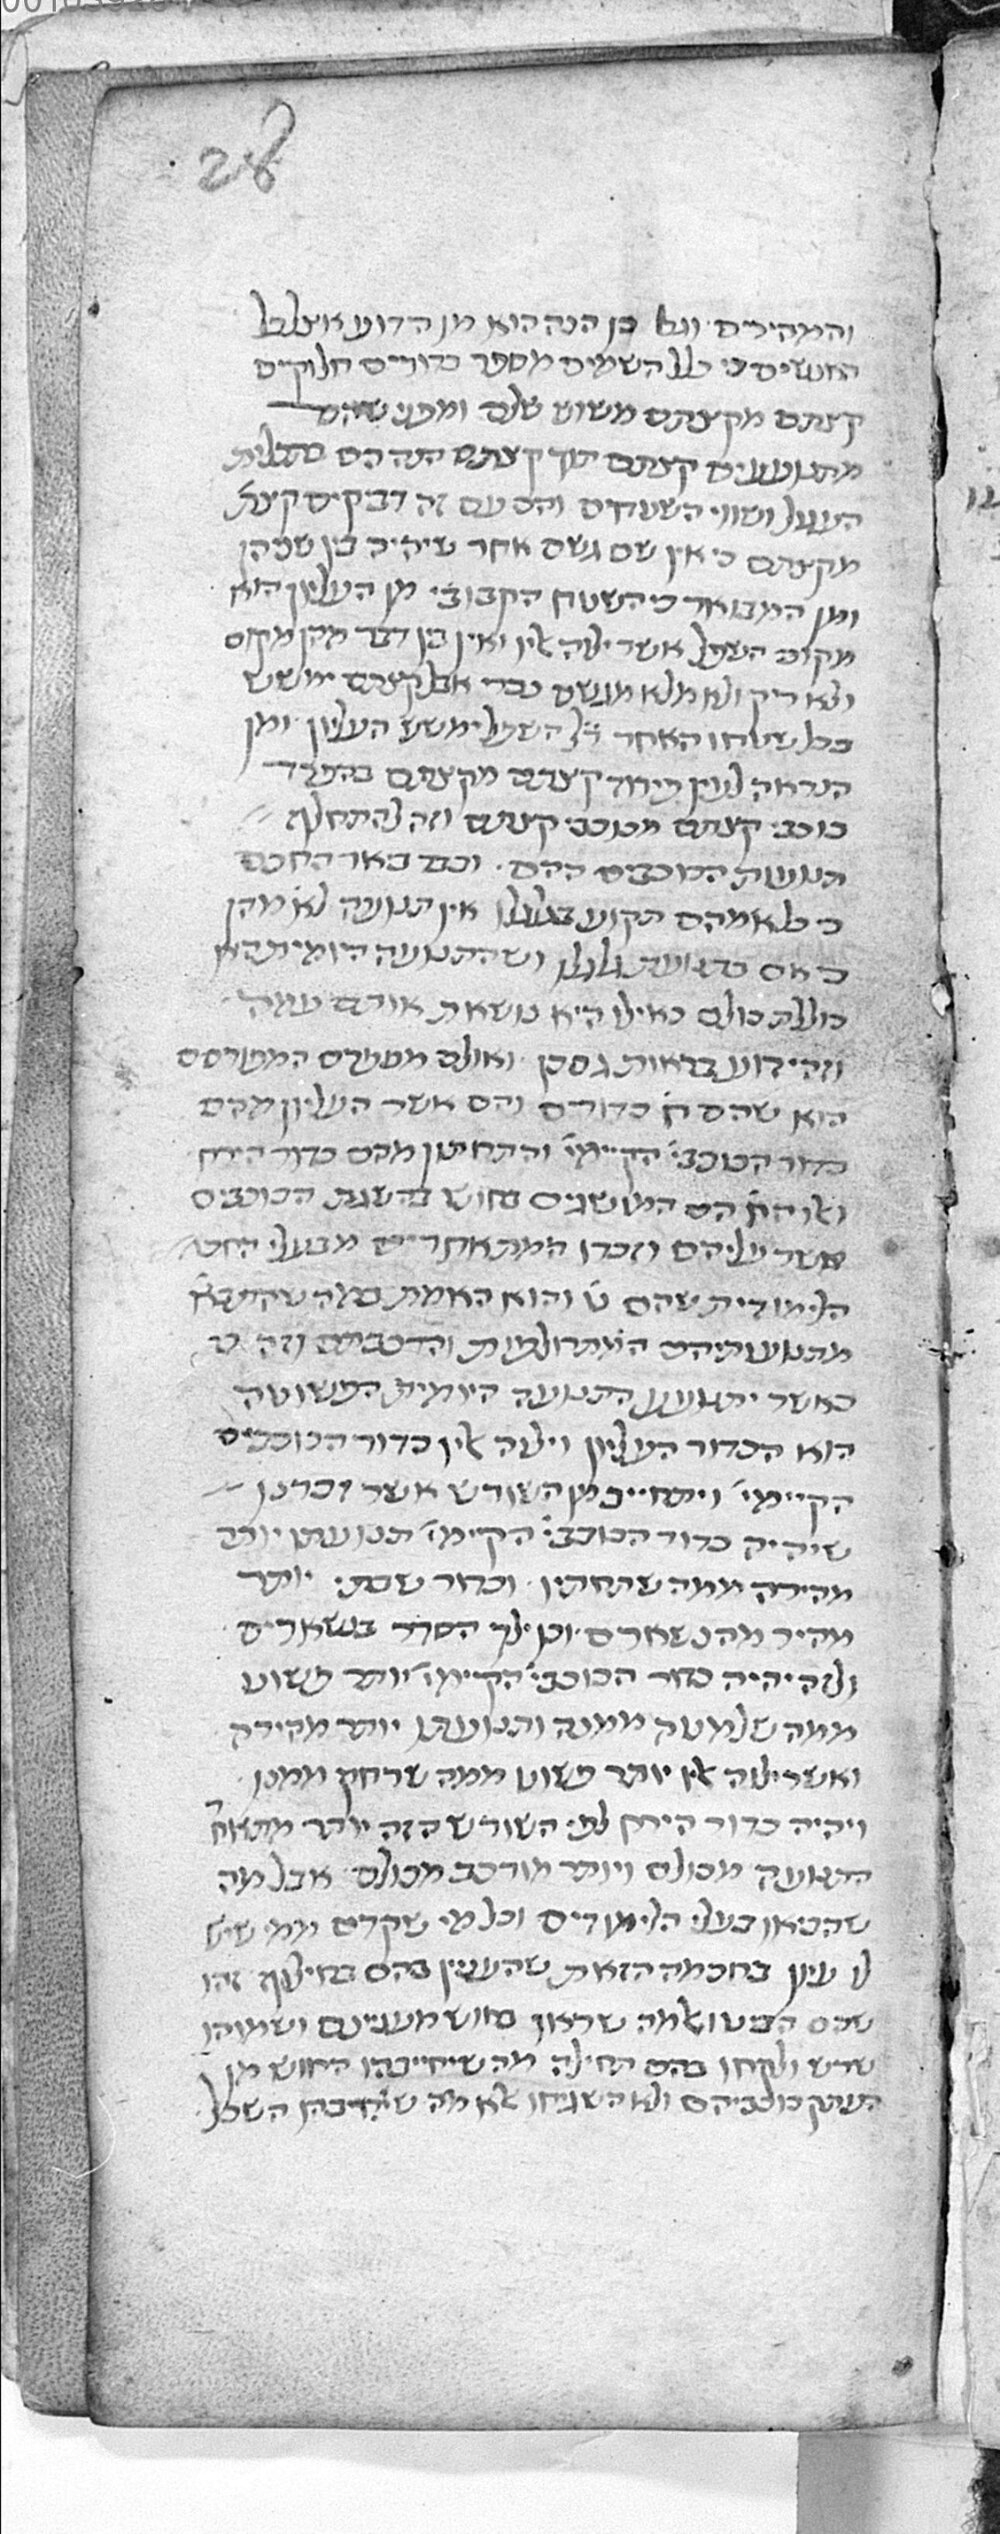 28
והמהירים וגם כן הנה הוא מן הידוע אצל כל
האנשים כי כלל השמים מספר כדוריים חלוקים
קצתם מקצתם משוש שלם ומפני שהם
מתנועעים קצתם תוך קצתם הנה הם בתכלית
העגול ושווי השטחים והם עם זה דביקים קצת
מקצתם כי אין שם גשם אחר שיהיה בין שניהן
ומן המבואר כי השטח הקבובי מן העליון הוא
מקום השפל אשר ילוה אליו ואין בין דבר מהן מקום
ולא ריק ולא מלא מגשם נכרי אבל קצתם ימשש
בכל שטחו האחר ר״ל השפל ימשש העליון ומן
הנראה לעין פירוד קצתם מקצתם בהפרד
כוכבי קצתם מכוכבי קצתם וזה להתחלף
תנועת הכוכבים ההם וכבר באר החכם
כי כל אמהם תקוע בגלגלו אין תנועה לא מהן
כי אם בתנועת גלגלו ושהתנועה היומית היא
כוללת כולם כאילו היא נושאת אותם עמה
וזה ידוע בראות גם כן ואולם מספרם המפורסם
הוא שהם ח׳ כדורים והם אשר העליון מהם
כדור הכוכבי׳ הקיימי׳ והתחתון מהם כדור הירח
ואלו הח׳ הם המושגים בחוש בהשגת הכוכבים
אשר עליהם וזכרו המתאחרים מבעלי החכמ׳
הלימודית שהם ט׳ והוא האמת במה שהתבא׳
מתנועותיהם המתחלפות והרכבתם וזה כי
כאשר יתנועע התנועה היומית הפשוטה
הוא הכדור העליון וילוה אליו כדור הכוכבים
הקיימי׳ ויתחייב מן השורש אשר זכרנו
שיהיה כדור הכוכבי׳ הקיימי׳ תנועתו יותר
מהירה ממה שתחתיו וכדור שבתי יותר
מהיר מהנשארים וכן ילך הסדר בנשארים
ולזה יהיה כדור הכוכבי׳ הקיימי׳ יותר פשוט
ממה שלמטה ממנה ותנועתו יותר מהירה
ואשר ילוה אליו יותר פשוט ממה שרחק ממנו
ויהיה כדור הירח לפי השורש הזה יותר מתאח׳
התנועה מכולם ויותר מורכב מכולם אבל מה
שהביאו בעלי הלימודים וכל מי שקדם ממי שיש
לו עיון בחכמה הזאת שהענין בהם בחילוף זהו
שהם הביטו אל מה שראו בחוש מענינם ושמוהו
שרש ולקחו בהם תחילה מה שיחייבהו החוש מן
העתק כוכביהם ולא השגיחו אל מה שיחייבהו השכל